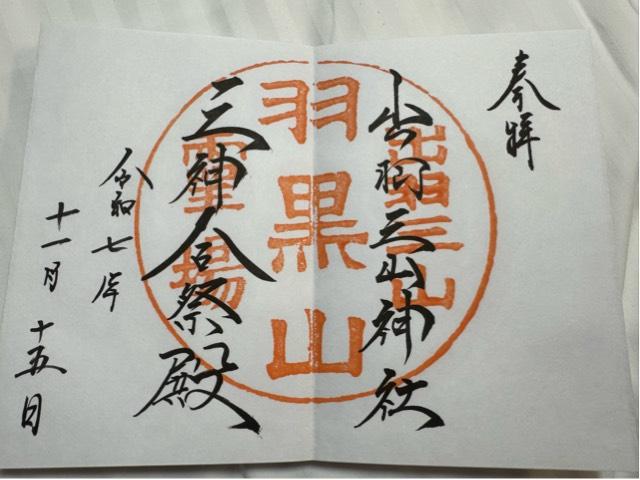 奉拝
出羽三山神社
出羽三山
羽黒山
霊場
三神合祭殿
令和七年
十一月十五日